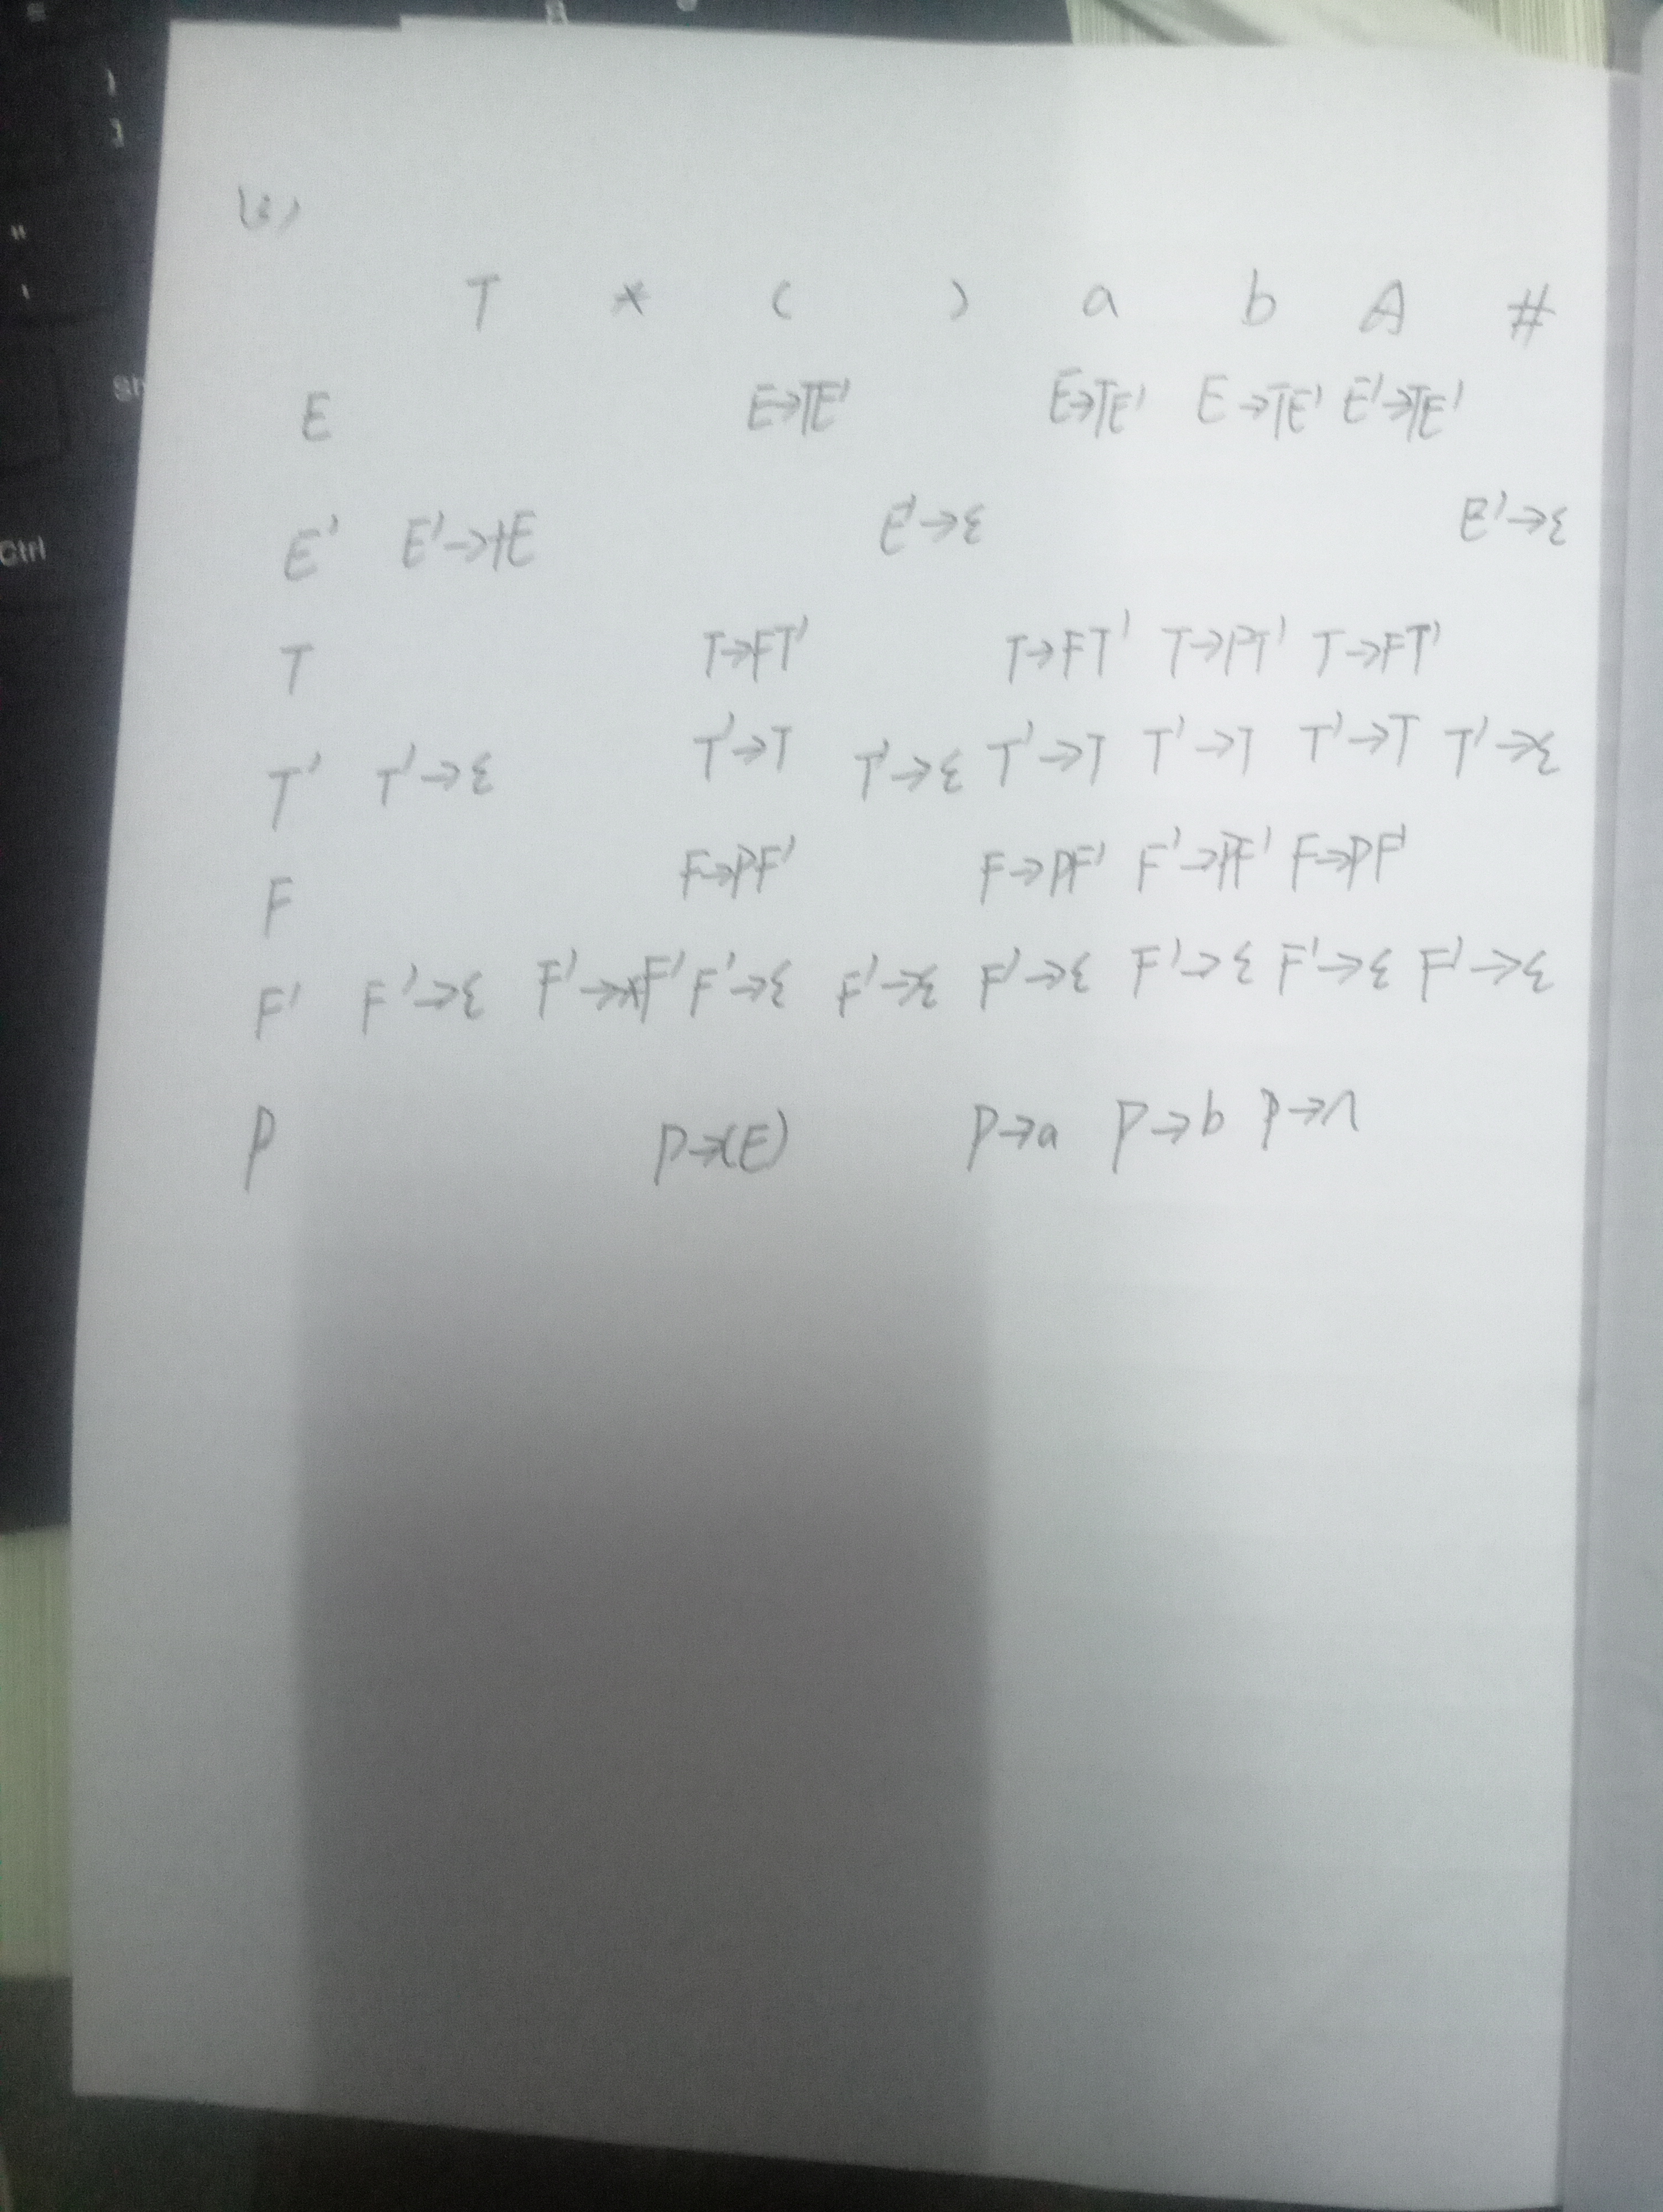 (3)
T * ( ) a b A #
E E→TE' E→TE' E→TE' E'→TE'
E' E'→+E E'→ε E'→ε
T T→FT' T→FT' T→FT' T→FT'
T' T'→ε T'→T T'→ε T'→T T'→T T'→T T'→ε
F F→PF' F→PF' F'→PF' F→PF'
F' F'→ε F'→*F' F'→ε F'→ε F'→ε F'→ε F'→ε F'→ε
P P→(E) P→a P→b P→∧
Ctrl